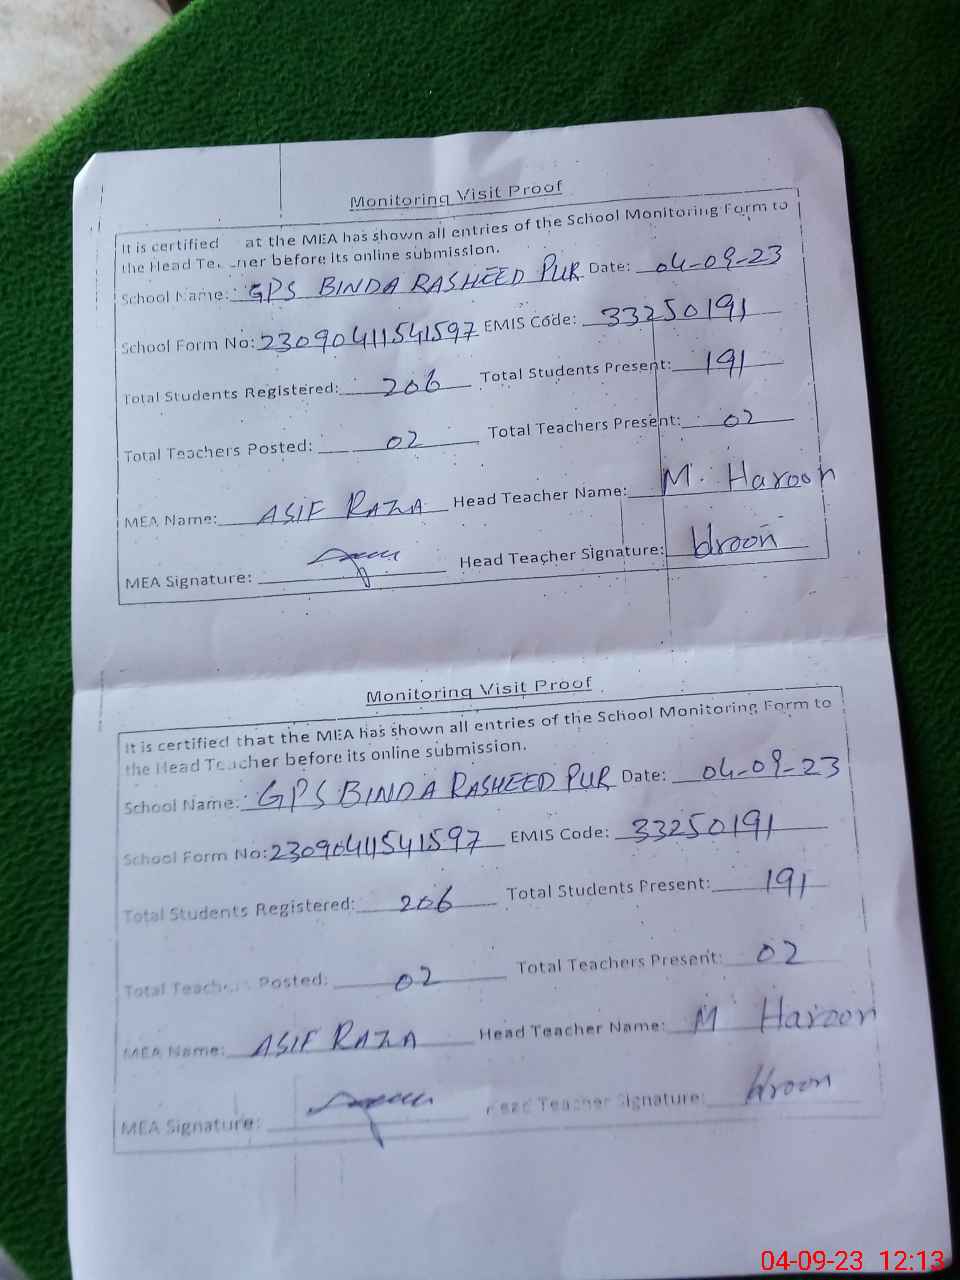 Monitoring Visit Proof
It is certified at the MEA has shown all entries of the School Monitoring Form to
the Head Te ner before its online submission.
School Name: GPS BINDA RASHEED PUR Date: 04-09-23
School Form No: 23090411541597 EMIS Code: 33250191
Total Students Registered: 206 Total Students Present: 191
Total Teachers Posted: 02 Total Teachers Present: 02
MEA Name: ASIF RAZA Head Teacher Name: M. Haroon
MEA Signature: Head Teacher Signature: Hroon
Monitoring Visit Proof
It is certified that the MEA has shown all entries of the School Monitoring Form to
the Head Teacher before its online submission.
School Name: GPS BINDA RASHEED PUR Date: 04-09-23
School Form No: 23090411541597 EMIS Code: 33250191
Total Students Registered: 206 Total Students Present: 191
Total Teachers Posted: 02 Total Teachers Present: 02
MEA Name: ASIF RAZA Head Teacher Name: M Haroon
MEA Signature: Head Teacher Signature: Hroon
04-09-23 12:13